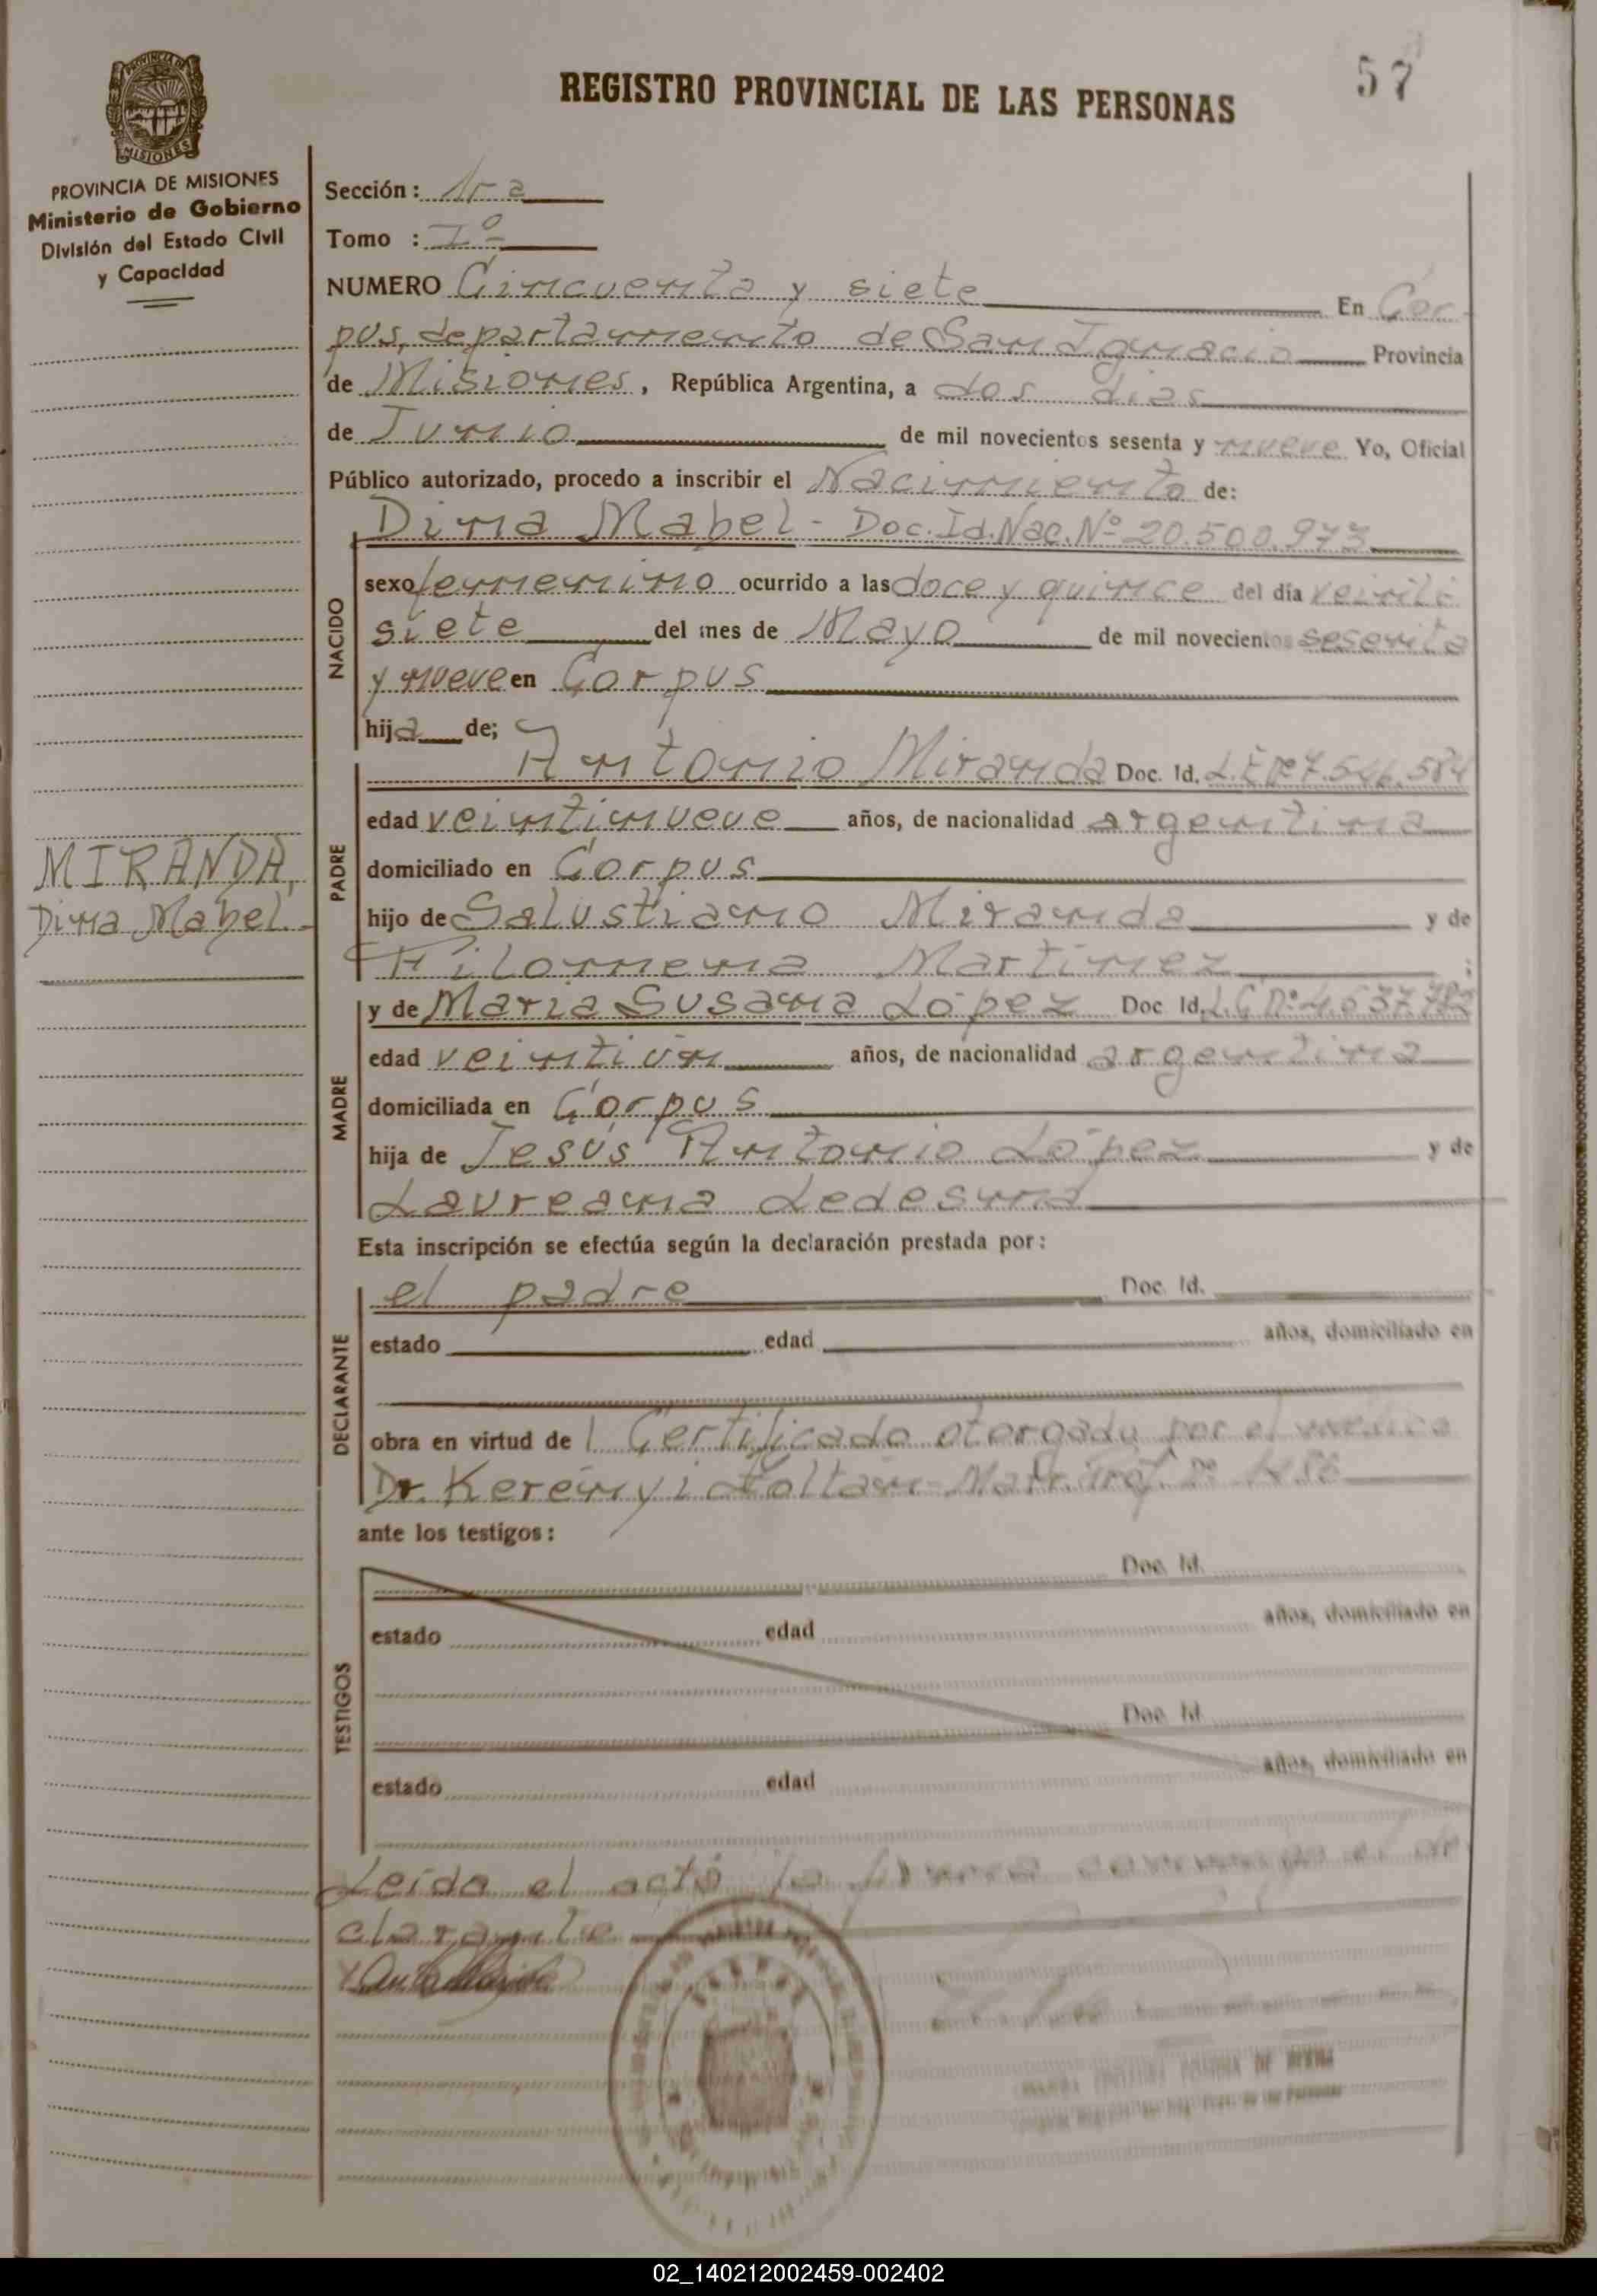 57
REGISTRO PROVINCIAL DE LAS PERSONAS
PROVINCIA DE
MISIONES
PROVINCIA DE MISIONES
Ministerio de Gobierno
División del Estado Civil
y Capacidad
MIRANDA,
Dina Mabel.
Sección: 1ra
Tomo : Iº
NUMERO Cincuenta y siete En Cor-
pus, departamento de San Ignacio Provincia
de Misiones, República Argentina, a dos dias
de Junio de mil novecientos sesenta y nueve Yo, Oficial
Público autorizado, procedo a inscribir el Nacimiento de:
NACIDO
Dina Mabel - Doc. Id. Nac. Nº 20.500.973
sexo femenino ocurrido a las doce y quince del día veinti
siete del mes de Mayo de mil novecientos sesenta
y nueve en Corpus
hija de;
PADRE
Antonio Miranda Doc. Id. L.E. Nº 7.546.584
edad veintinueve años, de nacionalidad argentina
domiciliado en Corpus
hijo de Salustiano Miranda y de
Filomena Martinez ;
MADRE
y de Maria Susana López Doc Id. L.C. Nº 4.637.782
edad veintiún años, de nacionalidad argentina
domiciliada en Corpus
hija de Jesús Antonio López y de
Laureana Ledesma
Esta inscripción se efectúa según la declaración prestada por:
DECLARANTE
el padre Doc. Id.
estado edad años, domiciliado en
obra en virtud de 1 Certificado otorgado por el médico
Dr. Kerényi Zoltán - Matr. Prof. Nº 1486
ante los testigos:
TESTIGOS
Doc. Id.
estado edad años, domiciliado en
Doc. Id.
estado edad años, domiciliado en
Leida el acta la firma conmigo el de
clarante
02_140212002459-002402